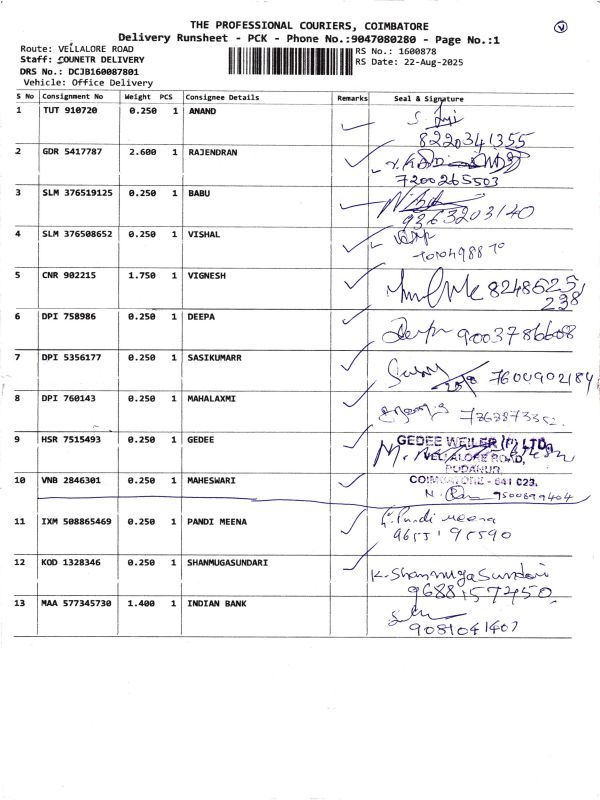 THE PROFESSIONAL COURIERS, COIMBATORE
Delivery Runsheet - PCK - Phone No.:9047080280 - Page No.:1
Route: VELLALORE ROAD
RS No.: 1600878
Staff: COUNETR DELIVERY
RS Date: 22-Aug-2025
DRS No.: DCJB160087801
Vehicle: Office Delivery
S No Consignment No Weight PCS Consignee Details Remarks Seal & Signature
1 TUT 910720 0.250 1 ANAND
8220341355
2 GDR 5417787 2.600 1 RAJENDRAN
7200265503
3 SLM 376519125 0.250 1 BABU
9363203140
4 SLM 376508652 0.250 1 VISHAL
5 CNR 902215 1.750 1 VIGNESH
8248625
238
6 DPI 758986 0.250 1 DEEPA
Deepa 9003786608
7 DPI 5356177 0.250 1 SASIKUMARR
7600902184
8 DPI 760143 0.250 1 MAHALAXMI
9 HSR 7515493 0.250 1 GEDEE
GEDEE WEILER (P) LTD,
VELLALORE ROAD,
PODANUR,
10 VNB 2846301 0.250 1 MAHESWARI
COIMBATORE - 641 023.
9500699404
11 IXM 508865469 0.250 1 PANDI MEENA
G. Pandi meena
9655195590
12 KOD 1328346 0.250 1 SHANMUGASUNDARI
K. Shanmuga Sundari
9688157450
13 MAA 577345730 1.400 1 INDIAN BANK
9081041407